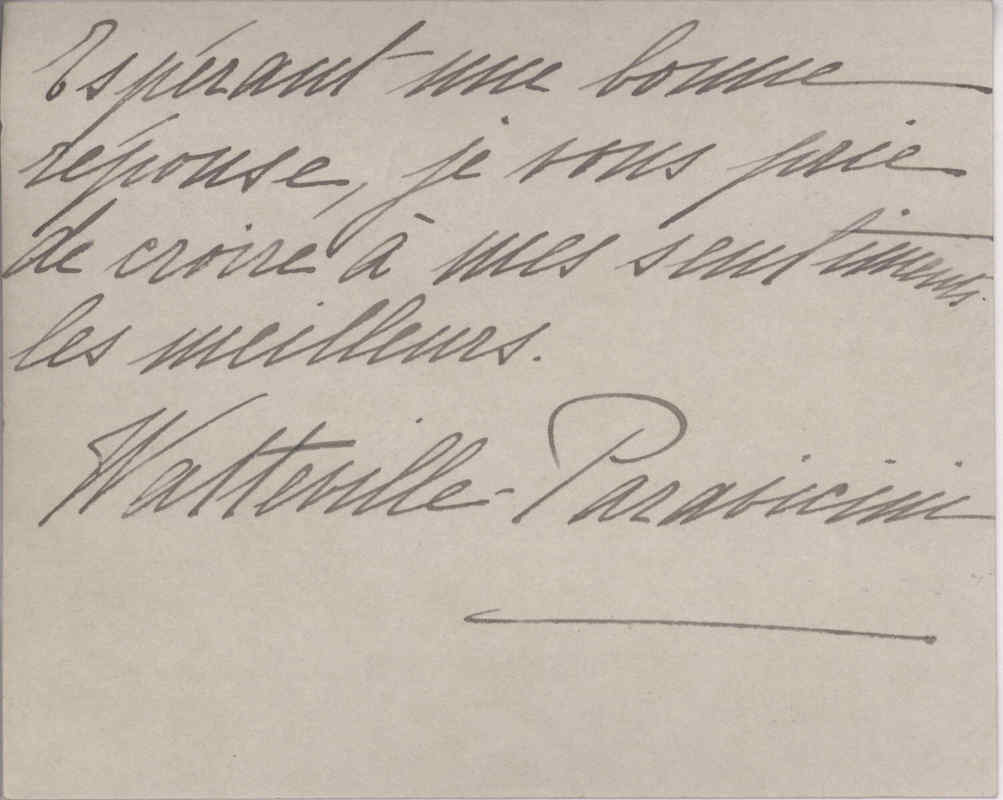 Espérant une bonne
réponse, je vous prie
de croire à mes sentiments
les meilleurs.
Watteville-Paravicini